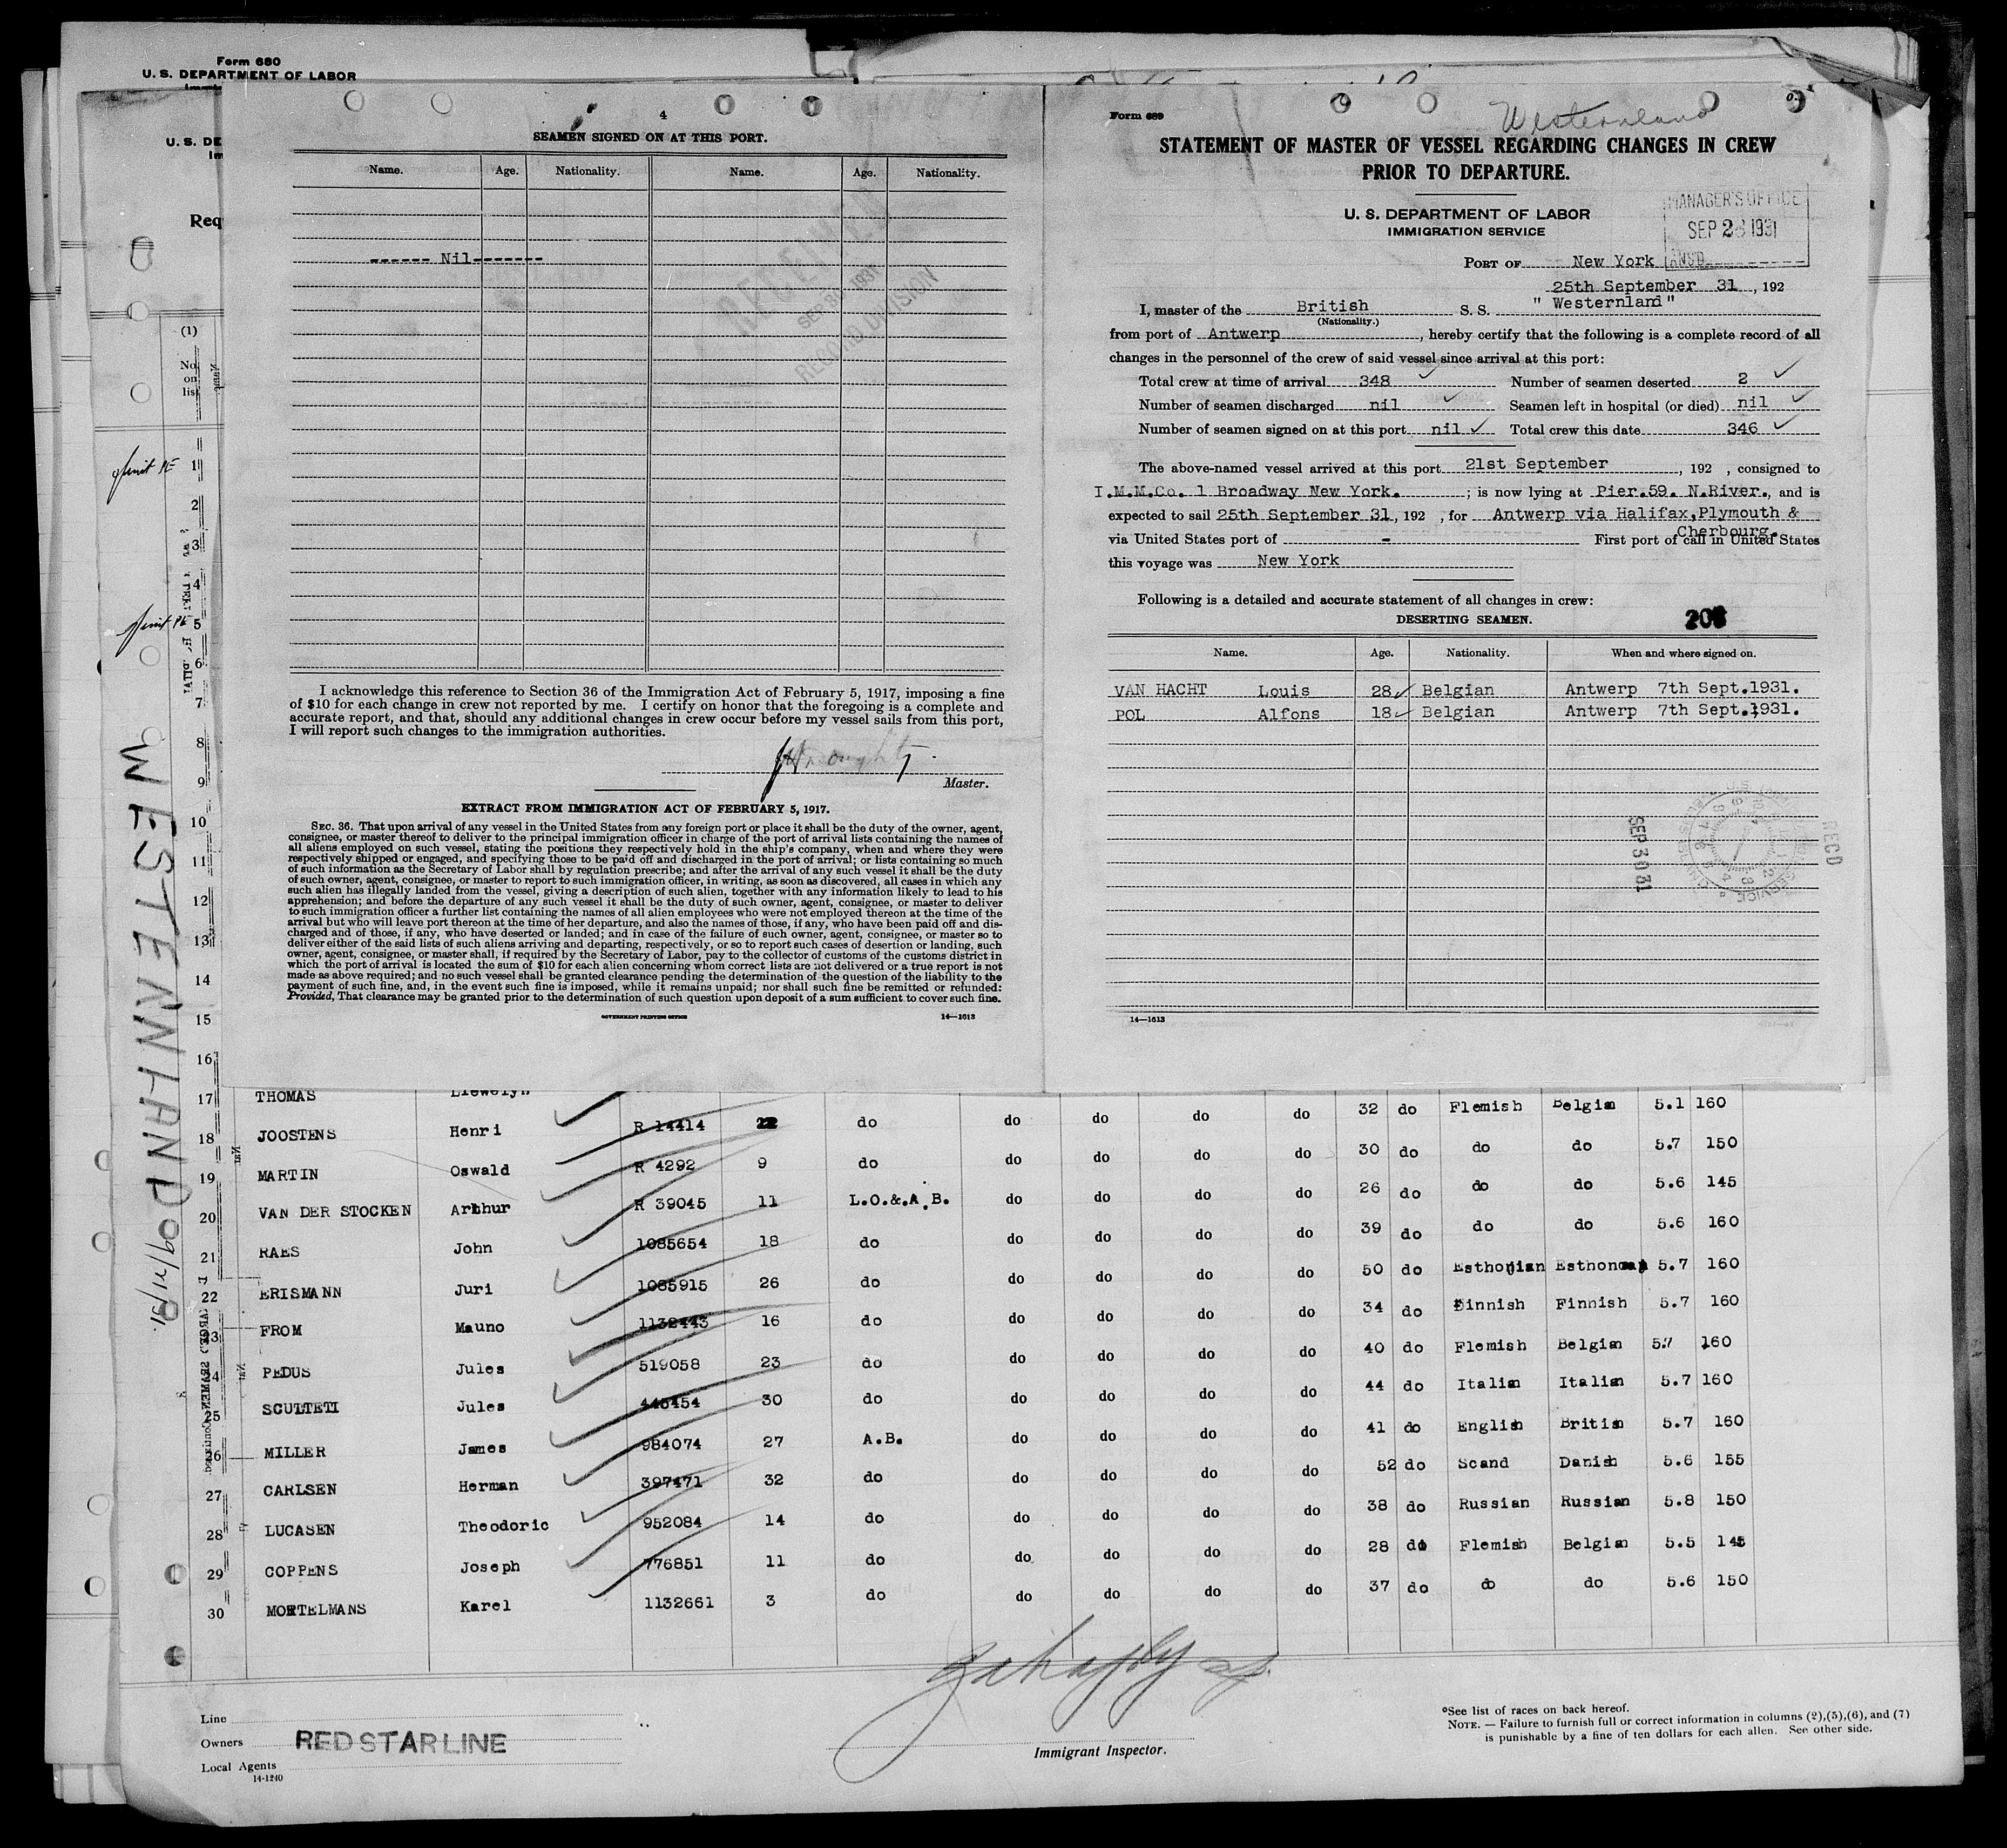 Form 680
U. S. DEPARTMENT OF LABOR
U. S. DE
Im
Req
(1)
No.
on
list
4
SEAMEN SIGNED ON AT THIS PORT.
Name. Age. Nationality. Name. Age. Nationality.
------ Nil-------
RECEIVED
SEP 30 1931
RECORD DIVISION
I acknowledge this reference to Section 36 of the Immigration Act of February 5, 1917, imposing a fine
of $10 for each change in crew not reported by me. I certify on honor that the foregoing is a complete and
accurate report, and that, should any additional changes in crew occur before my vessel sails from this port,
I will report such changes to the immigration authorities.
Master.
EXTRACT FROM IMMIGRATION ACT OF FEBRUARY 5, 1917.
SEC. 36. That upon arrival of any vessel in the United States from any foreign port or place it shall be the duty of the owner, agent,
consignee, or master thereof to deliver to the principal immigration officer in charge of the port of arrival lists containing the names of
all aliens employed on such vessel, stating the positions they respectively hold in the ship's company, when and where they were
respectively shipped or engaged, and specifying those to be paid off and discharged in the port of arrival; or lists containing so much
of such information as the Secretary of Labor shall by regulation prescribe; and after the arrival of any such vessel it shall be the duty
of such owner, agent, consignee, or master to report to such immigration officer, in writing, as soon as discovered, all cases in which any
such alien has illegally landed from the vessel, giving a description of such alien, together with any information likely to lead to his
apprehension; and before the departure of any such vessel it shall be the duty of such owner, agent, consignee, or master to deliver
to such immigration officer a further list containing the names of all alien employees who were not employed thereon at the time of the
arrival but who will leave port thereon at the time of her departure, and also the names of those, if any, who have been paid off and dis-
charged and of those, if any, who have deserted or landed; and in case of the failure of such owner, agent, consignee, or master so to
deliver either of the said lists of such aliens arriving and departing, respectively, or so to report such cases of desertion or landing, such
owner, agent, consignee, or master shall, if required by the Secretary of Labor, pay to the collector of customs of the customs district in
which the port of arrival is located the sum of $10 for each alien concerning whom correct lists are not delivered or a true report is not
made as above required; and no such vessel shall be granted clearance pending the determination of the question of the liability to the
payment of such fine, and, in the event such fine is imposed, while it remains unpaid; nor shall such fine be remitted or refunded:
Provided, That clearance may be granted prior to the determination of such question upon deposit of a sum sufficient to cover such fine.
GOVERNMENT PRINTING OFFICE 14—1613
Form 689
Westernland
STATEMENT OF MASTER OF VESSEL REGARDING CHANGES IN CREW
PRIOR TO DEPARTURE.
U. S. DEPARTMENT OF LABOR
IMMIGRATION SERVICE
MANAGER'S OFFICE
SEP 26 1931
ANS'D
PORT OF New York
25th September 31 , 192
I, master of the British S. S. " Westernland"
(Nationality.)
from port of Antwerp , hereby certify that the following is a complete record of all
changes in the personnel of the crew of said vessel since arrival at this port:
Total crew at time of arrival 348 Number of seamen deserted 2
Number of seamen discharged nil Seamen left in hospital (or died) nil
Number of seamen signed on at this port nil Total crew this date 346
The above-named vessel arrived at this port 21st September , 192 , consigned to
I.M.M.Co. 1 Broadway New York. ; is now lying at Pier.59. N.River., and is
expected to sail 25th September 31, 192 , for Antwerp via Halifax,Plymouth &
Cherbourg.
via United States port of - First port of call in United States
this voyage was New York
Following is a detailed and accurate statement of all changes in crew:
DESERTING SEAMEN.
Name. Age. Nationality. When and where signed on.
VAN HACHT Louis 28 Belgian Antwerp 7th Sept.1931.
POL Alfons 18 Belgian Antwerp 7th Sept.1931.
SEP 30 31
RECD
14—1613
WESTERNLAND 9/21/31.
1
2
3
4
5
6
7
8
9
10
11
12
13
14
15
16
17 THOMAS Llewelyn
18 JOOSTENS Henri R 14414 22 do do do do do 32 do Flemish Belgian 5.1 160
19 MARTIN Oswald R 4292 9 do do do do do 30 do do do 5.7 150
20 VAN DER STOCKEN Arthur R 39045 11 L.O.&.A.B. do do do do 26 do do do 5.6 145
21 RAES John 1085654 18 do do do do do 39 do do do 5.6 160
22 ERISMANN Juri 1085915 26 do do do do do 50 do Esthonian Esthonian 5.7 160
23 FROM Mauno 1132443 16 do do do do do 34 do Finnish Finnish 5.7 160
24 PEDUS Jules 519058 23 do do do do do 40 do Flemish Belgian 5.7 160
25 SCULTETI Jules 445454 30 do do do do do 44 do Italian Italian 5.7 160
26 MILLER James 984074 27 A.B. do do do do 41 do English British 5.7 160
27 CARLSEN Herman 397471 32 do do do do do 52 do Scand Danish 5.6 155
28 LUCASEN Theodoric 952084 14 do do do do do 38 do Russian Russian 5.8 150
29 COPPENS Joseph 776851 11 do do do do do 28 do Flemish Belgian 5.5 145
30 MORTELMANS Karel 1132661 3 do do do do do 37 do do do 5.6 150
Line
Owners RED STAR LINE
Local Agents
14-1240
Immigrant Inspector.
*See list of races on back hereof.
NOTE. — Failure to furnish full or correct information in columns (2),(5),(6), and (7)
is punishable by a fine of ten dollars for each alien. See other side.